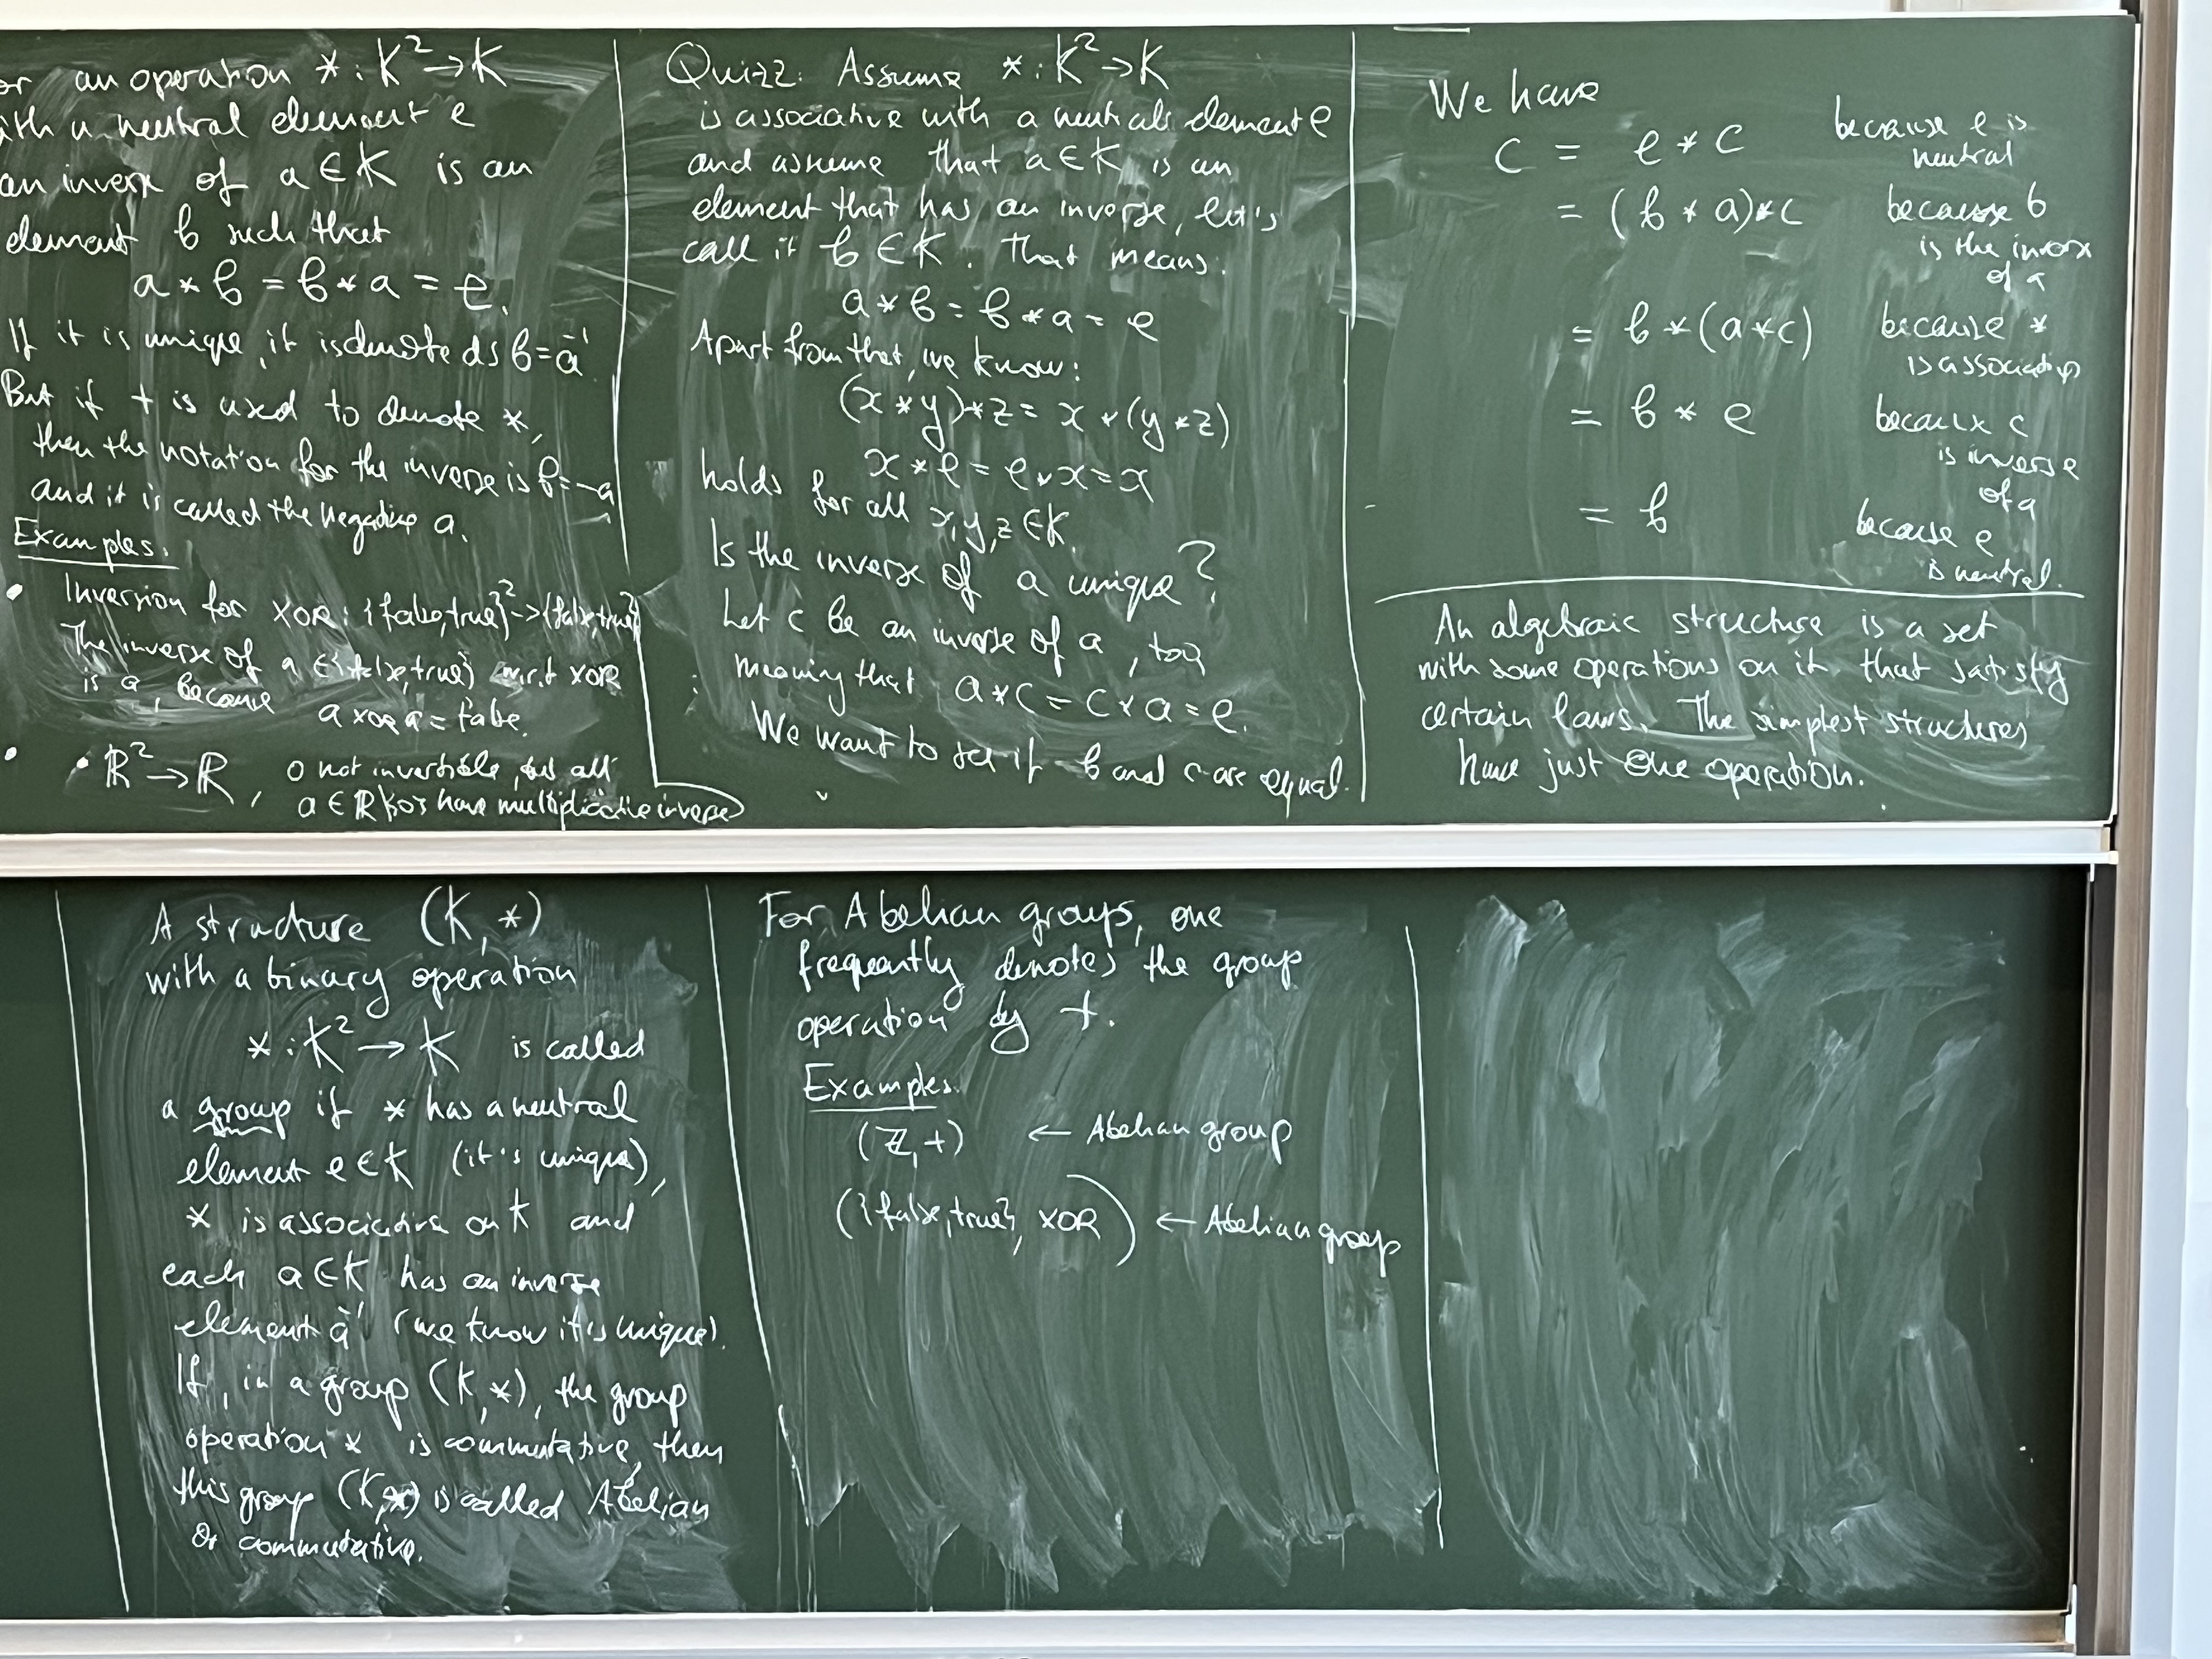 or an operation * : K² → K
ith a neutral element e
an inverse of a ∈ K is an
element b such that
a * b = b * a = e.
If it is unique, it is denoted as b = a⁻¹
But if + is used to denote *,
then the notation for the inverse is b = -a
and it is called the negative a.
Examples.
• Inversion for XOR : {false,true}² -> {false,true}
The inverse of a ∈ {false,true} w.r.t XOR
is a, because
a XOR a = false.
• · ℝ² → ℝ, 0 not invertible, but all
a ∈ ℝ\{0} have multiplicative inverse
Quizz: Assume * : K² → K
is associative with a neutrals element e
and assume that a ∈ K is an
element that has an inverse, let's
call it b ∈ K. That means:
a * b = b * a = e
Apart from that, we know:
(x * y) * z = x * (y * z)
x * e = e * x = x
holds for all x, y, z ∈ K.
Is the inverse of a unique?
Let c be an inverse of a, too
meaning that a * c = c * a = e.
We want to see if b and c are equal.
We have
c = e * c because e is neutral
= (b * a) * c because b is the inverse of a
= b * (a * c) because * is associative
= b * e because c is inverse of a
= b because e is neutral.
An algebraic structure is a set
with some operations on it that satisfy
certain laws. The simplest structures
have just one operation.
A structure (K, *)
with a binary operation
* : K² → K is called
a group if * has a neutral
element e ∈ K (it's unique),
* is associative on K and
each a ∈ K has an inverse
element a⁻¹ (we know it's unique).
If, in a group (K, *), the group
operation * is commutative, then
this group (K, *) is called Abelian
or commutative.
For Abelian groups, one
frequently denotes the group
operation by +.
Examples.
(ℤ, +) ← Abelian group
({false,true}, XOR) ← Abelian group